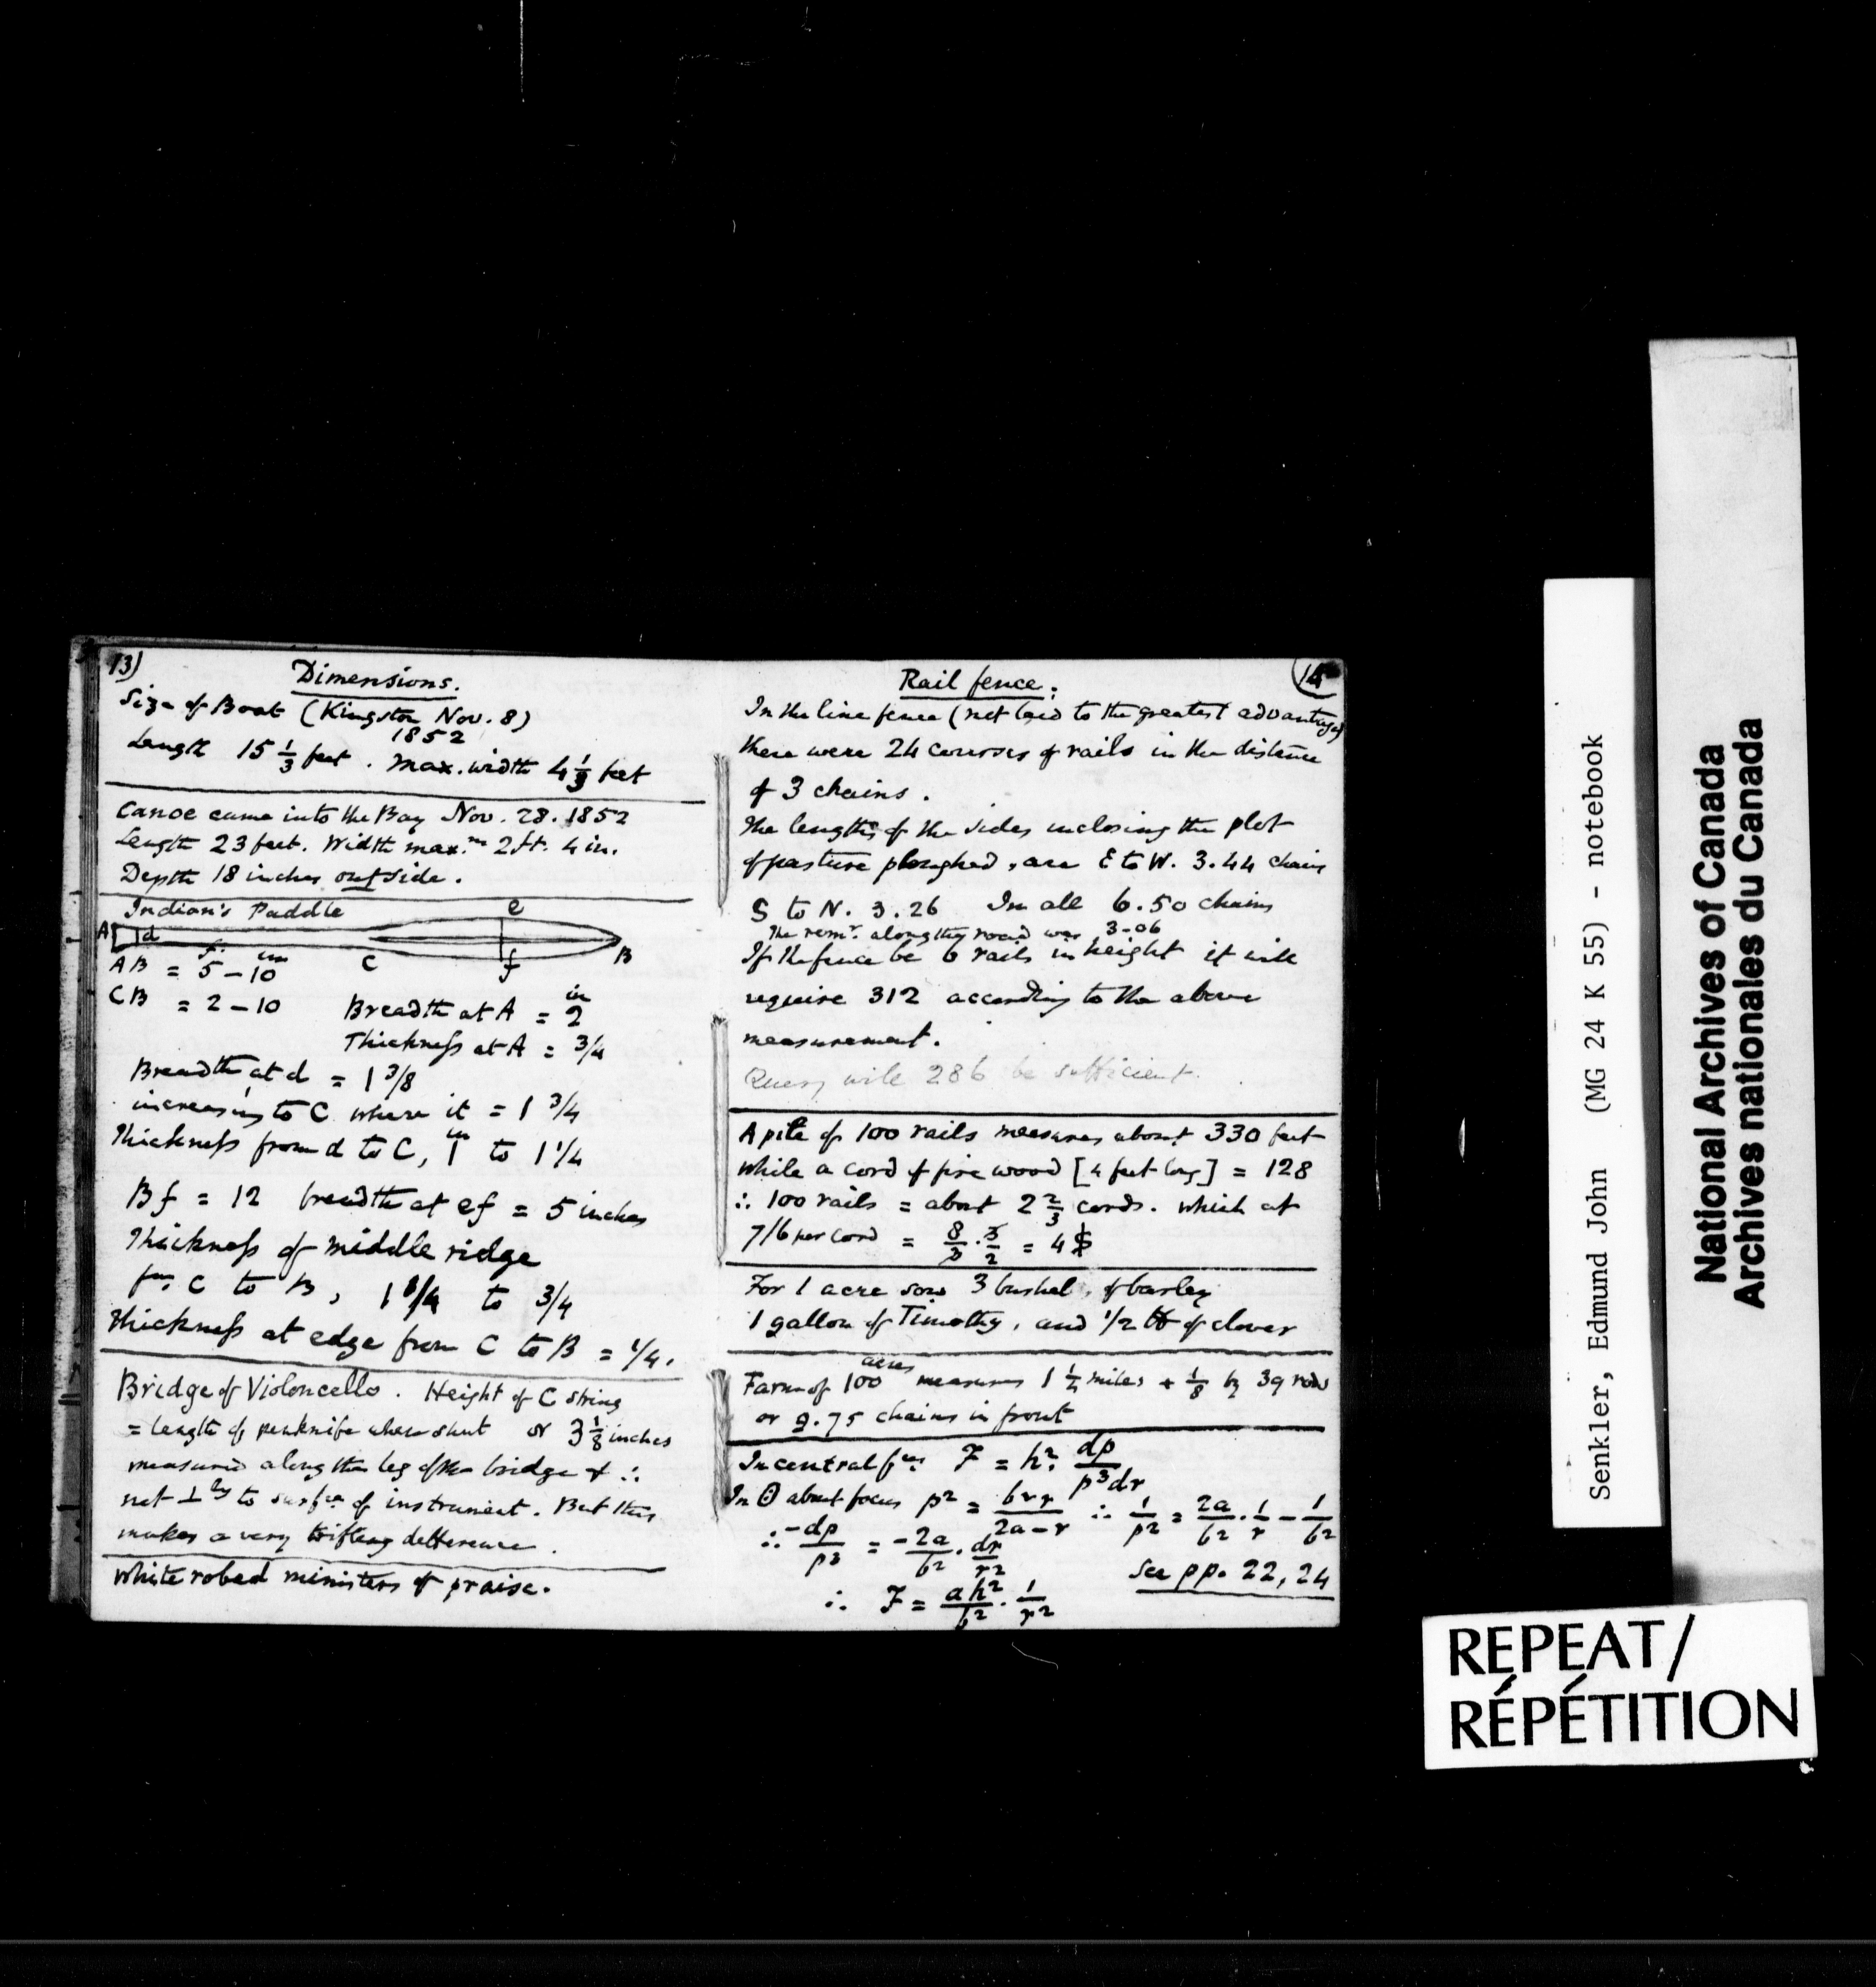 13)
Dimensions.
Size of Boat (Kingston Nov. 8)
1852
Length 15 1/3 feet. Max. width 4 1/3 feet
Canoe came into the Bay Nov. 28. 1852
Length 23 feet. Width max.m 2 ft. 4 in.
Depth 18 inches outside.
Indian's Paddle
e
A d
C f B
f. in
AB = 5 – 10
CB = 2 – 10
in
Breadth at A = 2
Thickness at A = 3/4
Breadth at d = 1 3/8
increasing to C where it = 1 3/4
in
Thickness from d to C, 1 to 1 1/4
Bf = 12 breadth at ef = 5 inches
Thickness of middle ridge
fm. C to B, 1 1/4 to 3/4
Thickness at edge from C to B = 1/4.
Bridge of Violoncello. Height of C string
= length of penknife when shut or 3 1/8 inches
measured along the leg of the bridge & ∴
not ⊥ly to surface of instrument. But this
makes a very trifling difference.
White robed ministers of praise.
14
Rail fence.
In the line fence (not laid to the greatest advantage)
there were 24 courses of rails in the distance
of 3 chains.
The lengths of the sides inclosing the plot
of pasture ploughed, are E to W. 3.44 chains
S to N. 3.26 In all 6.50 chains
The remr. along the road was 3-06
If the fence be 6 rails in height it will
require 312 according to the above
measurement.
Query will 286 be sufficient.
A pile of 100 rails measures about 330 feet
while a cord of fire wood [4 feet long] = 128
∴ 100 rails = about 2 2/3 cords. which at
7/6 per cord = 8/3 · 3/2 = 4 $
For 1 acre sow 3 bushels of barley
1 gallon of Timothy, and 1/2 lb of clover
acres
Farm of 100 measures 1 1/4 miles + 1/8 by 39 rods
or 9.75 chains in front
In central fces F = h². dp/p³dr
In ʘ about focus p² = b²r/2a–r ∴ 1/p² = 2a/b² · 1/r – 1/b²
∴ –dp/p³ = –2a/b² · dr/r²
See pp. 22, 24
∴ F = ah²/b² · 1/r²
Senkler, Edmund John (MG 24 K 55) - notebook
National Archives of Canada
Archives nationales du Canada
REPEAT/
RÉPÉTITION